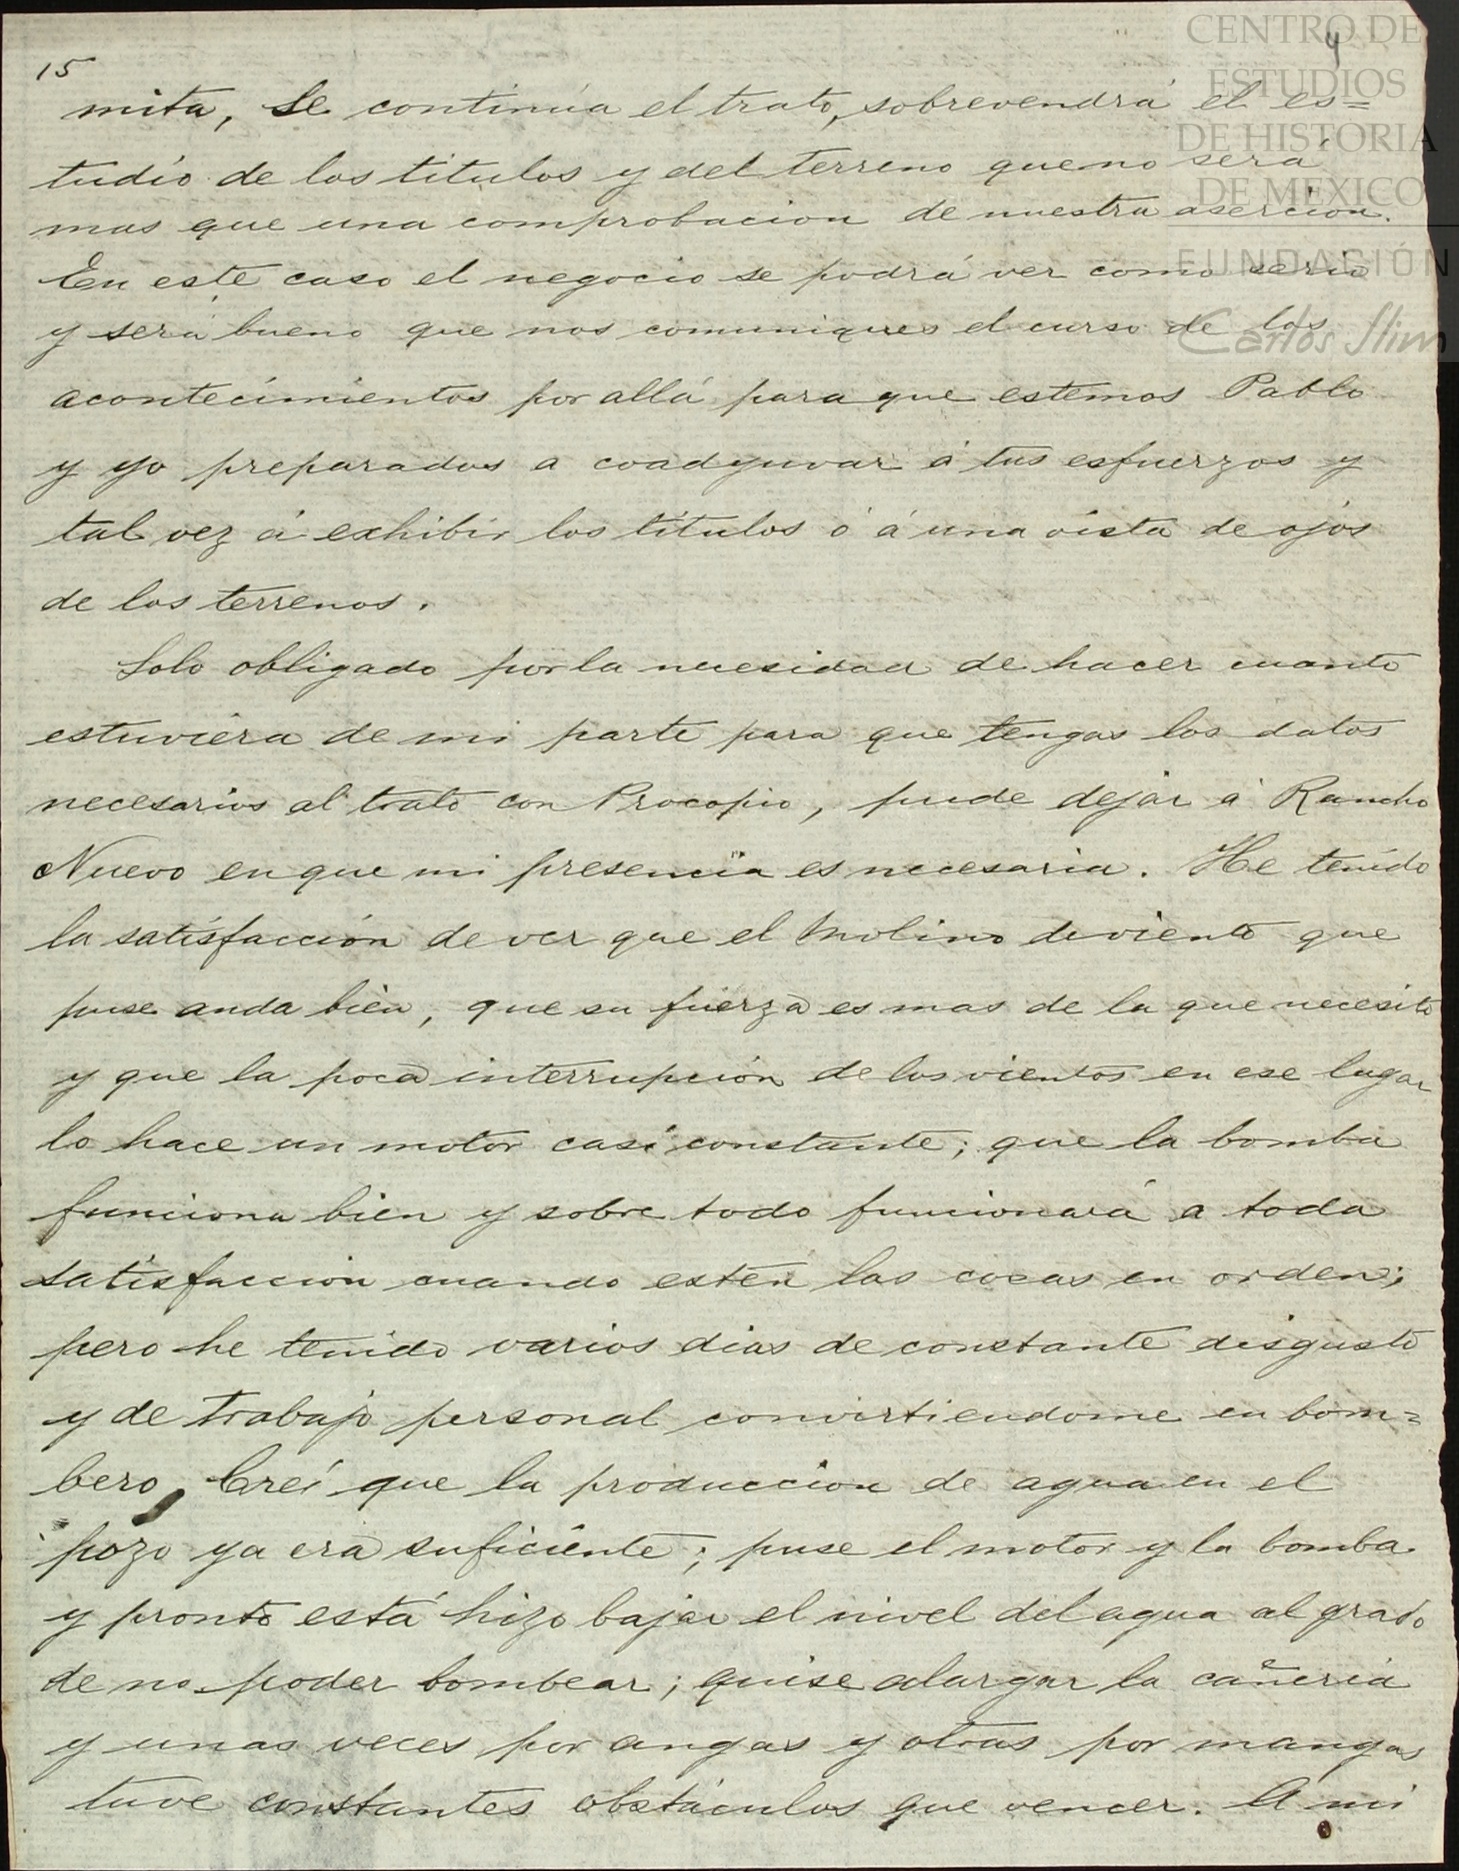 CENTRO DE
ESTUDIOS
DE HISTORIA
DE MÉXICO
FUNDACIÓN
Carlos Slim
15
4
mita, Se continúa el trato, sobrevendrá el es=
tudio de los titulos y del terreno que no será
mas que una comprobacion de nuestra asercion.
En este caso el negocio se podrá ver como serio
y será bueno que nos comuniques el curso de los
acontecimientos por allá para que estemos Pablo
y yo preparados a coadyuvar á tus esfuerzos y
tal vez á exhibir los titulos ó á una vista de ojos
de los terrenos.
Solo obligado por la necesidad de hacer cuanto
estuviera de mi parte para que tengas los datos
necesarios al trato con Procopio, pude dejar á Rancho
Nuevo en que mi presencia es necesaria. He tenido
la satisfacción de ver que el Molino de viento que
puse anda bien, que su fuerza es mas de la que necesito
y que la poca interrupción de los vientos en ese lugar
lo hace un motor casi constante; que la bomba
funciona bien y sobre todo funcionará a toda
satisfaccion cuando estén las cosas en orden;
pero he tenido varios dias de constante disgusto
y de trabajo personal convirtiendome en bom=
bero, Creí que la produccion de agua en el
pozo ya era suficiente; puse el motor y la bomba
y pronto está hizo bajar el nivel del agua al grado
de no poder bombear; quise alargar la cañeria
y unas veces por angas y otras por mangas
tuve constantes obstáculos que vencer. A mi